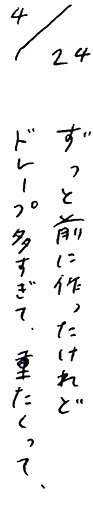 4/24
ずっと前に作ったけれど
ドレープ多すぎて、重たくって、